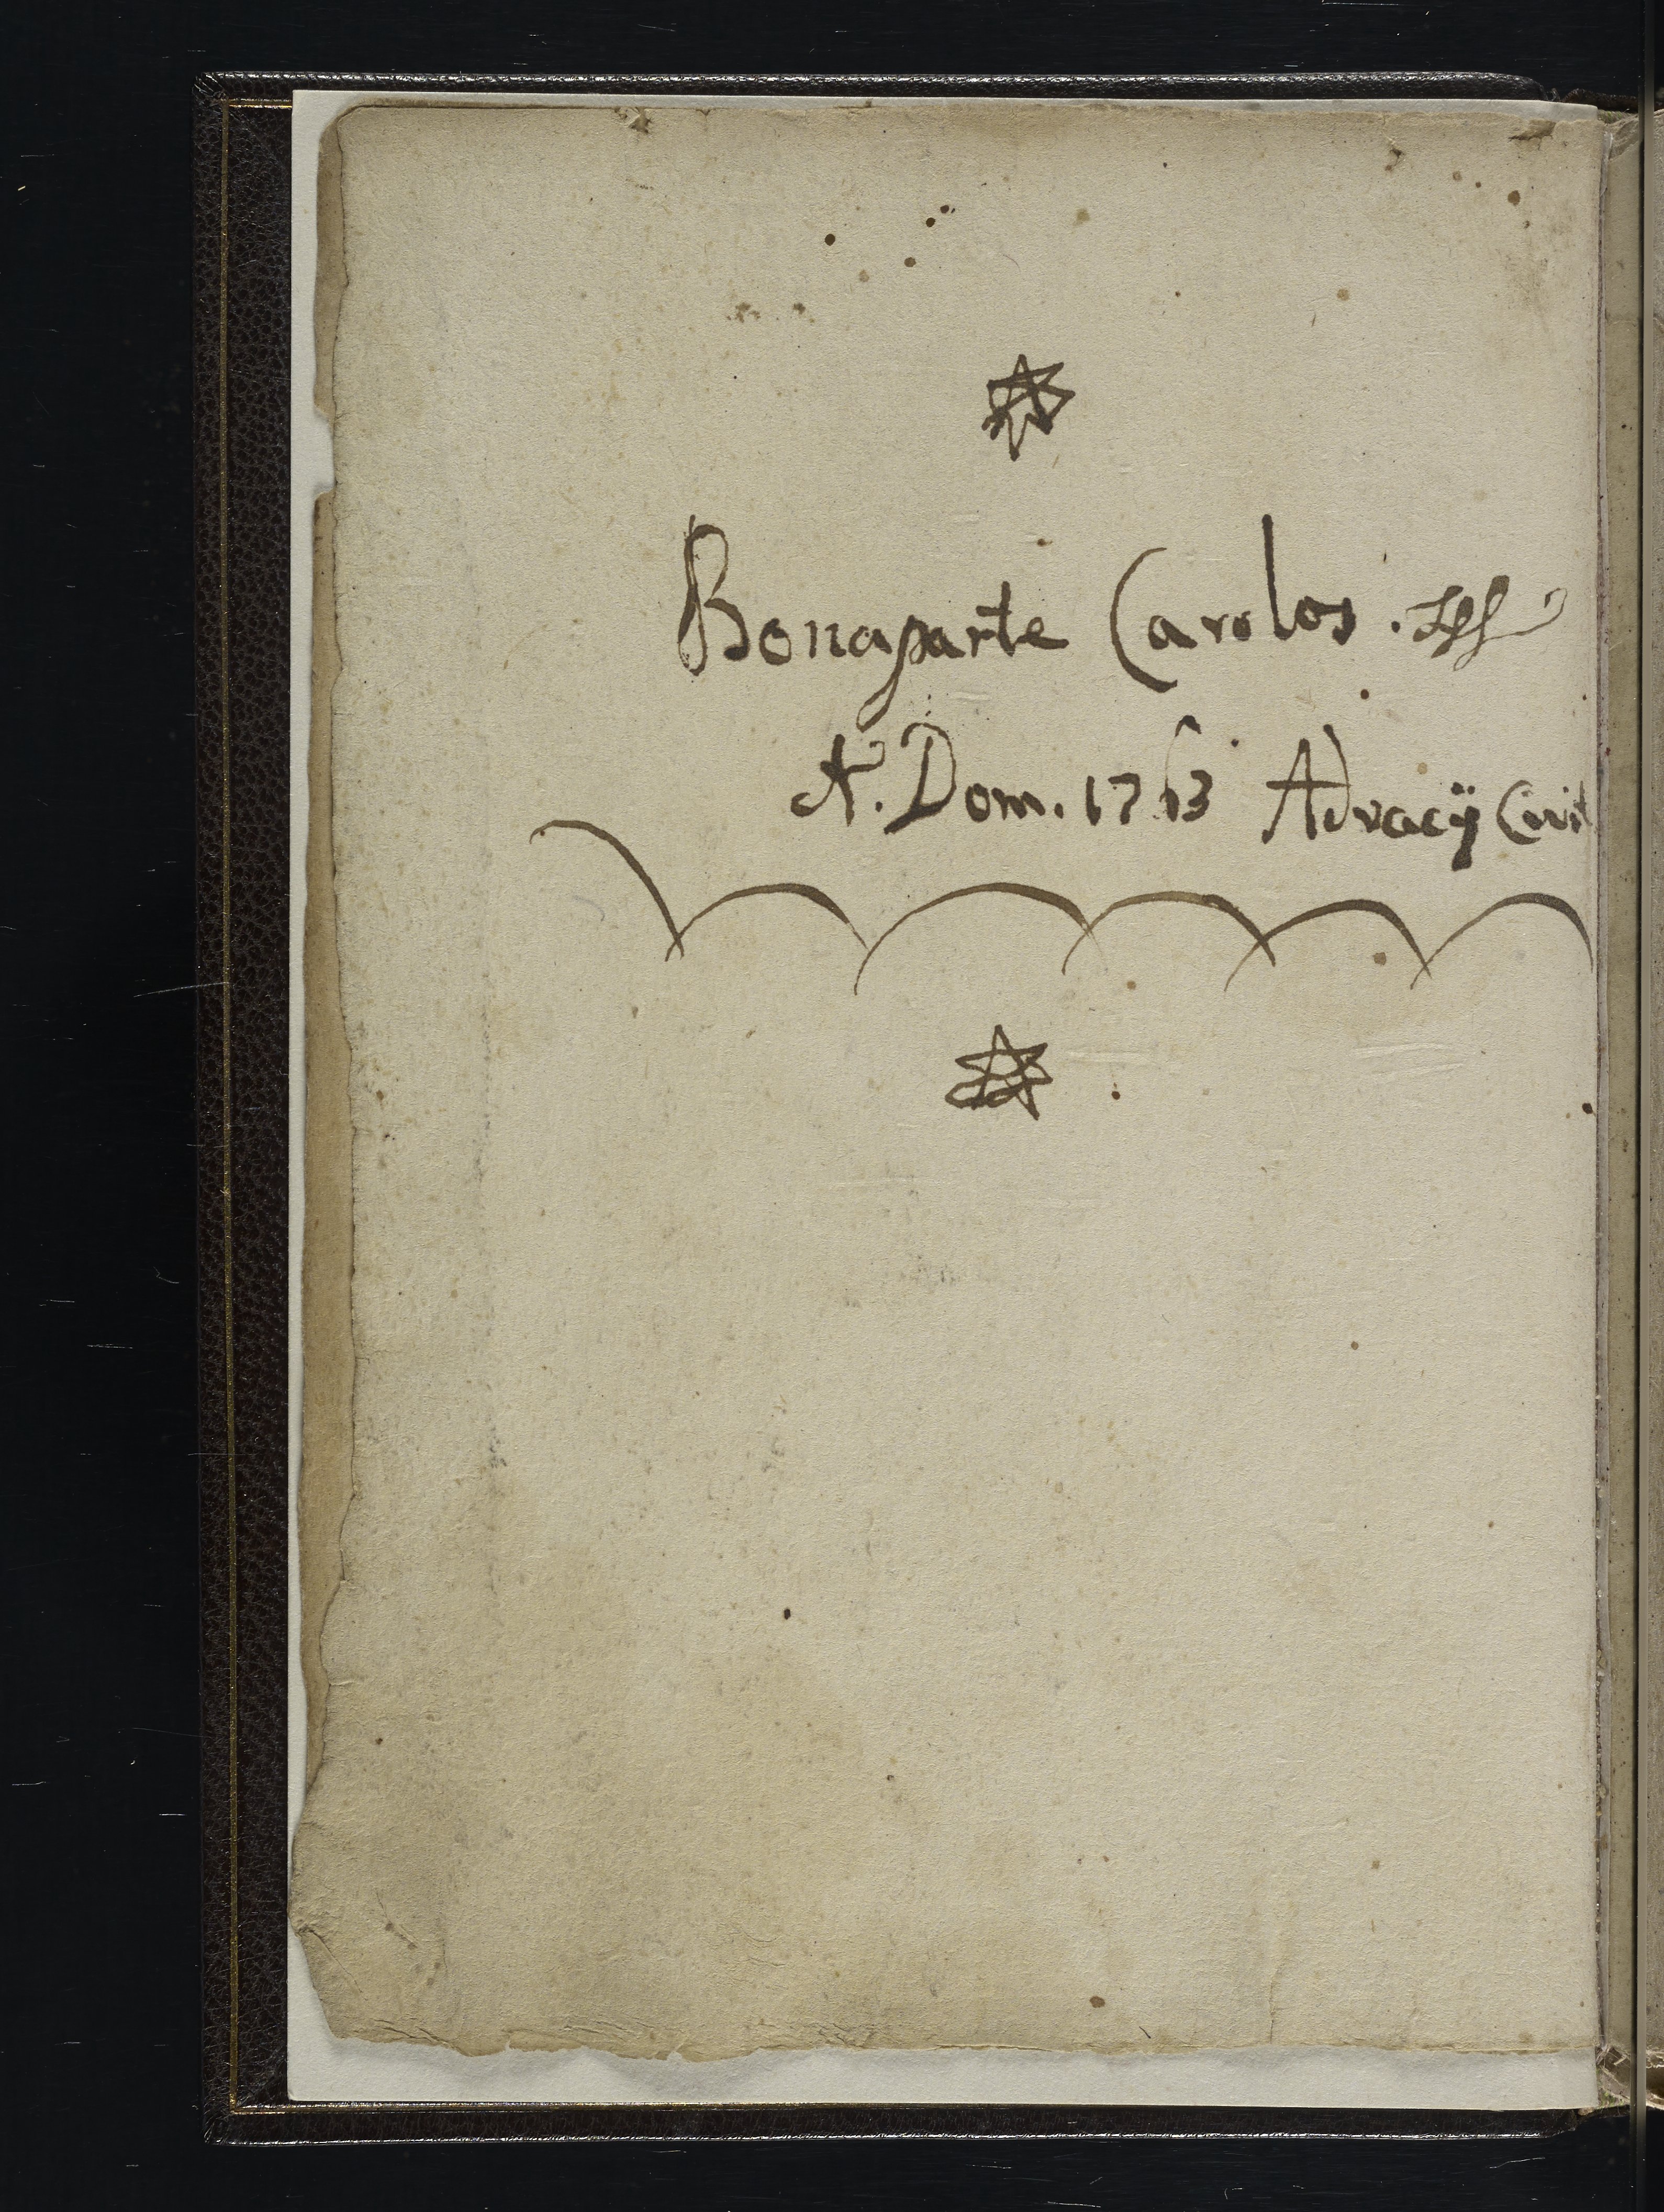 Bonaparte Carolos.
A. Dom. 1763 Adracij Civit